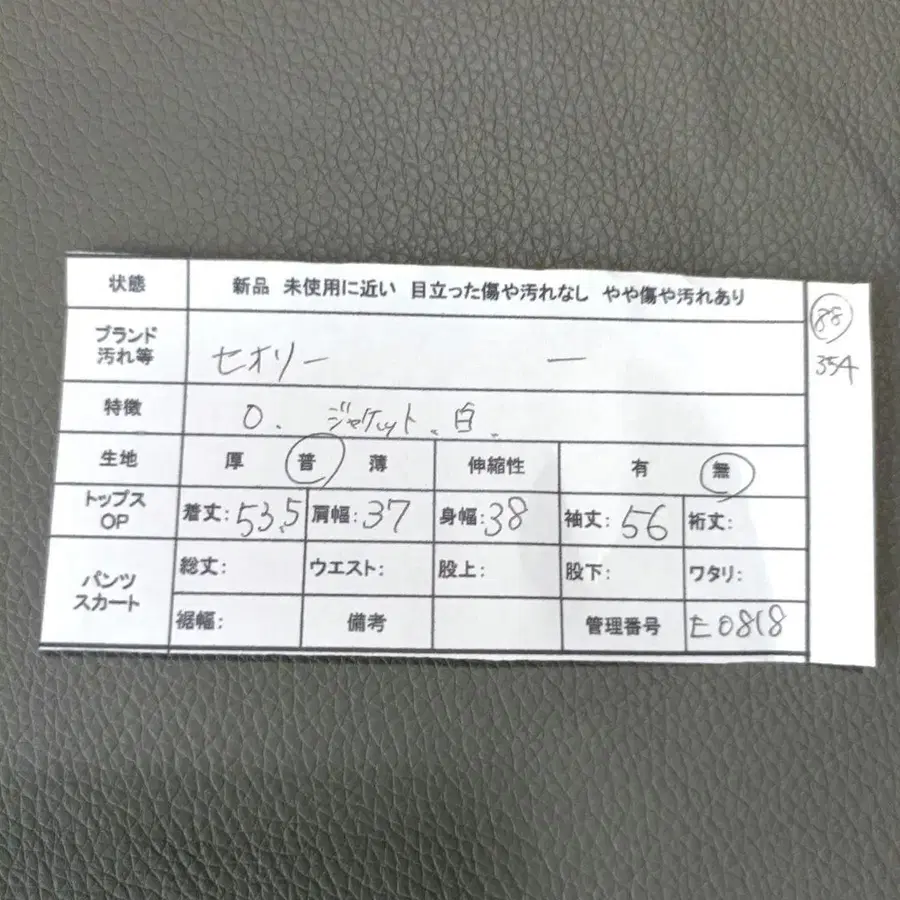 状態 新品 未使用に近い 目立った傷や汚れなし やや傷や汚れあり
88
354
ブランド
汚れ等 セオリー ー
特徴 0. ジャケット、白、
生地 厚 普 薄 伸縮性 有 無
トップス
OP 着丈:53.5 肩幅:37 身幅:38 袖丈:56 裄丈:
パンツ
スカート 総丈: ウエスト: 股上: 股下: ワタリ:
裾幅: 備考 管理番号 E0818